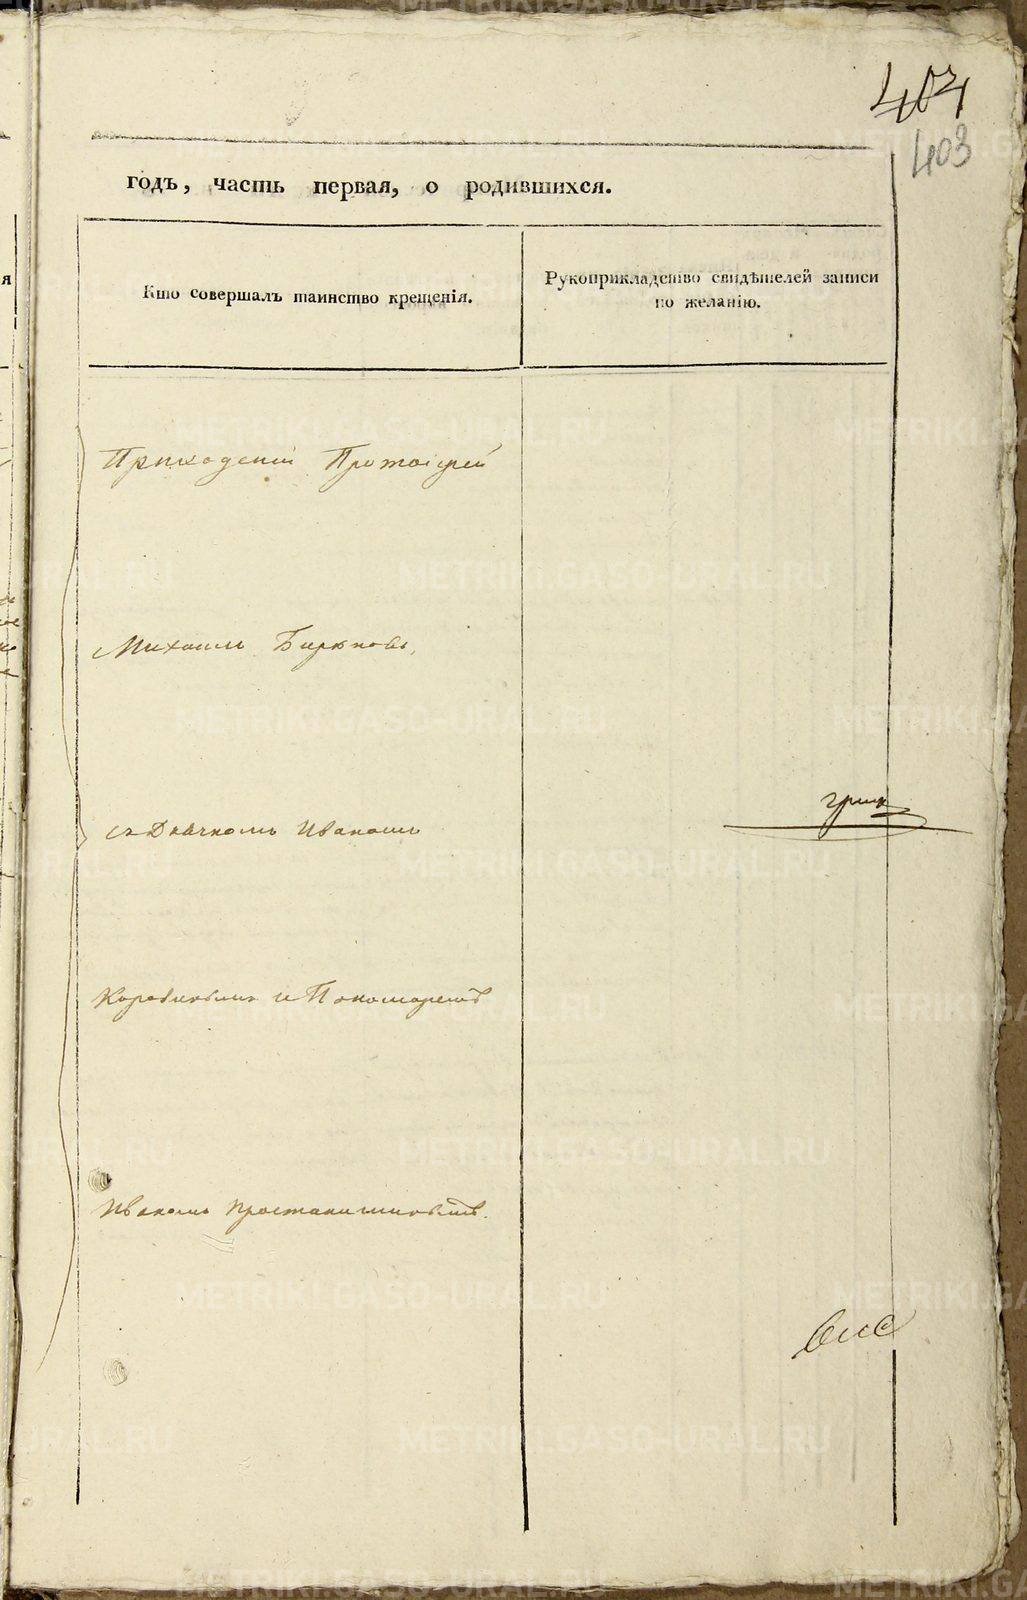 404
403
годъ, часть первая, о родившихся.
Кто совершалъ таинство крещенія.
Рукоприкладство свидѣтелей записи
по желанію.
Приходскій Протоіерей
Михаилъ Бирюковъ,
съ Дьячкомъ Иваномъ
и Пономаремъ
Иваномъ
METRIKI.GASO-URAL.RU